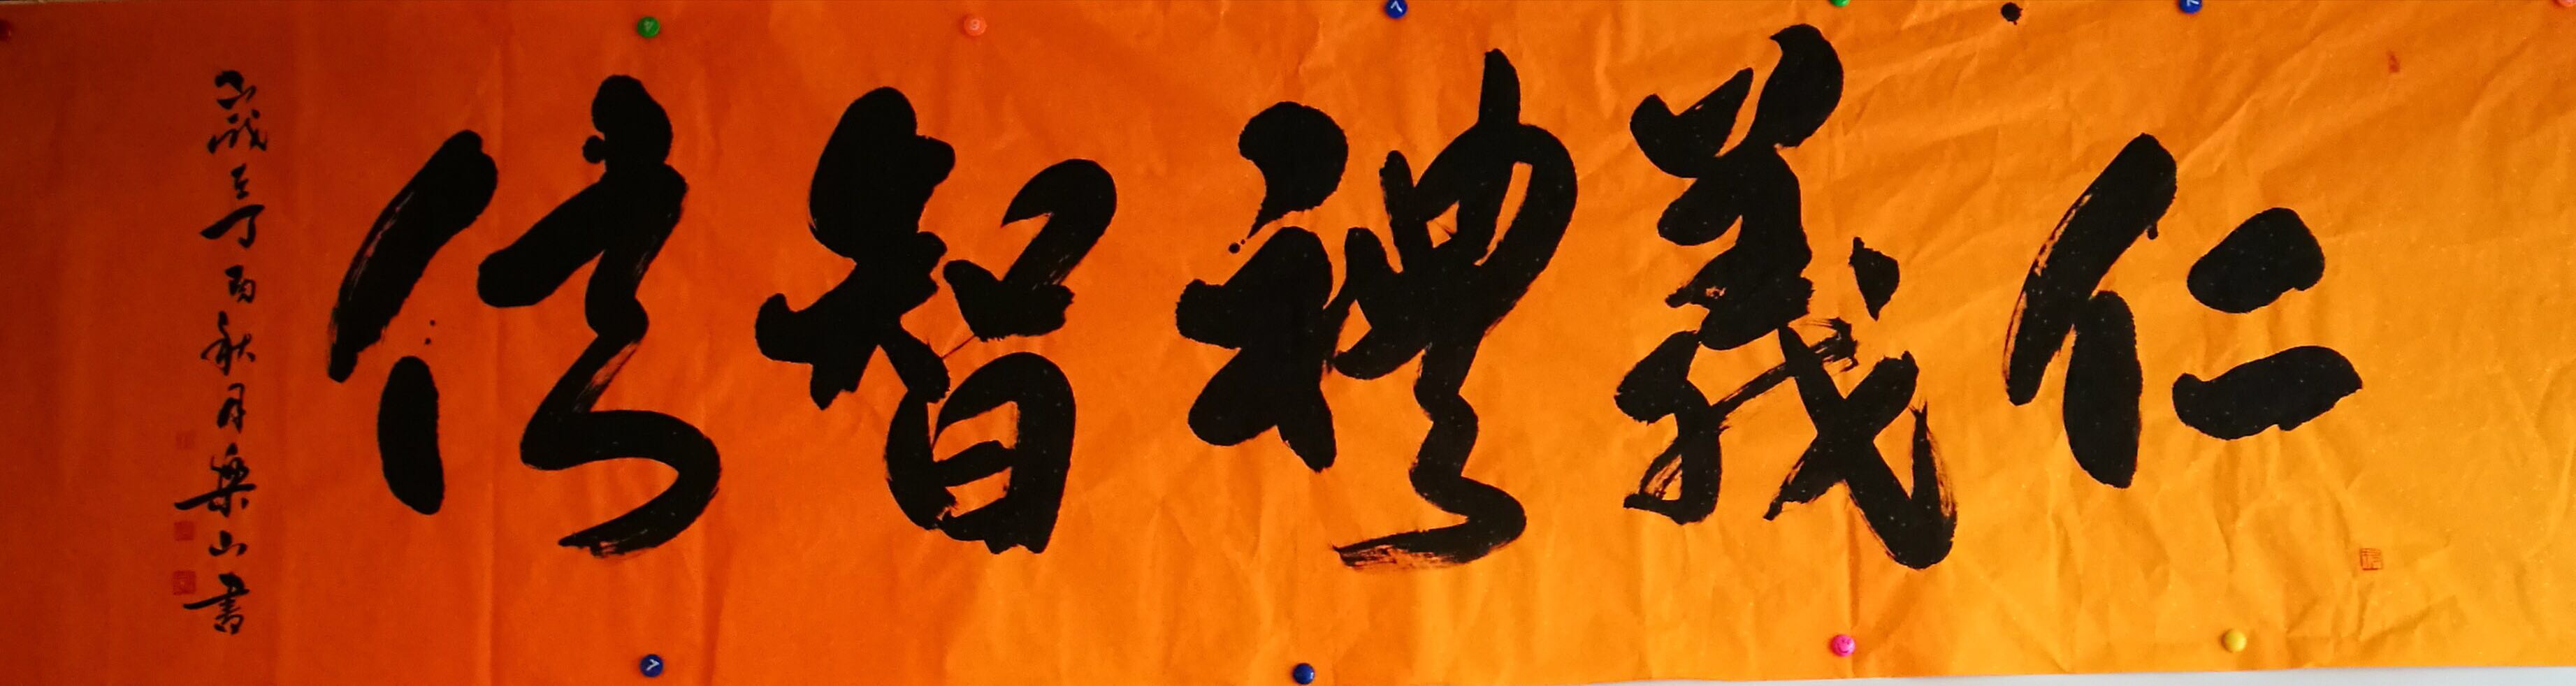 仁義禮智信
歲在丁酉秋月樂山書